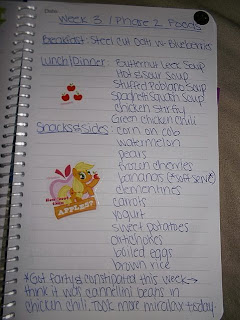 Date:
Week 3 / Phase 2 Foods
Breakfast: Steel Cut Oats w/ Blueberries
Lunch/Dinner: Butternut Leek Soup
Hot & Sour Soup
Stuffed Poblano Soup
Spaghetti Squash Soup
Chicken Stir Fry
Green Chicken Chili
Snacks & Sides: corn on cob
watermelon
pears
frozen cherries
bananas (& soft serve)
clementines
carrots
yogurt
sweet potatoes
artichokes
boiled eggs
brown rice
APPLES?
*Got farty & constipated this week →
think it was cannellini beans in
chicken chili. Took more miralax today.